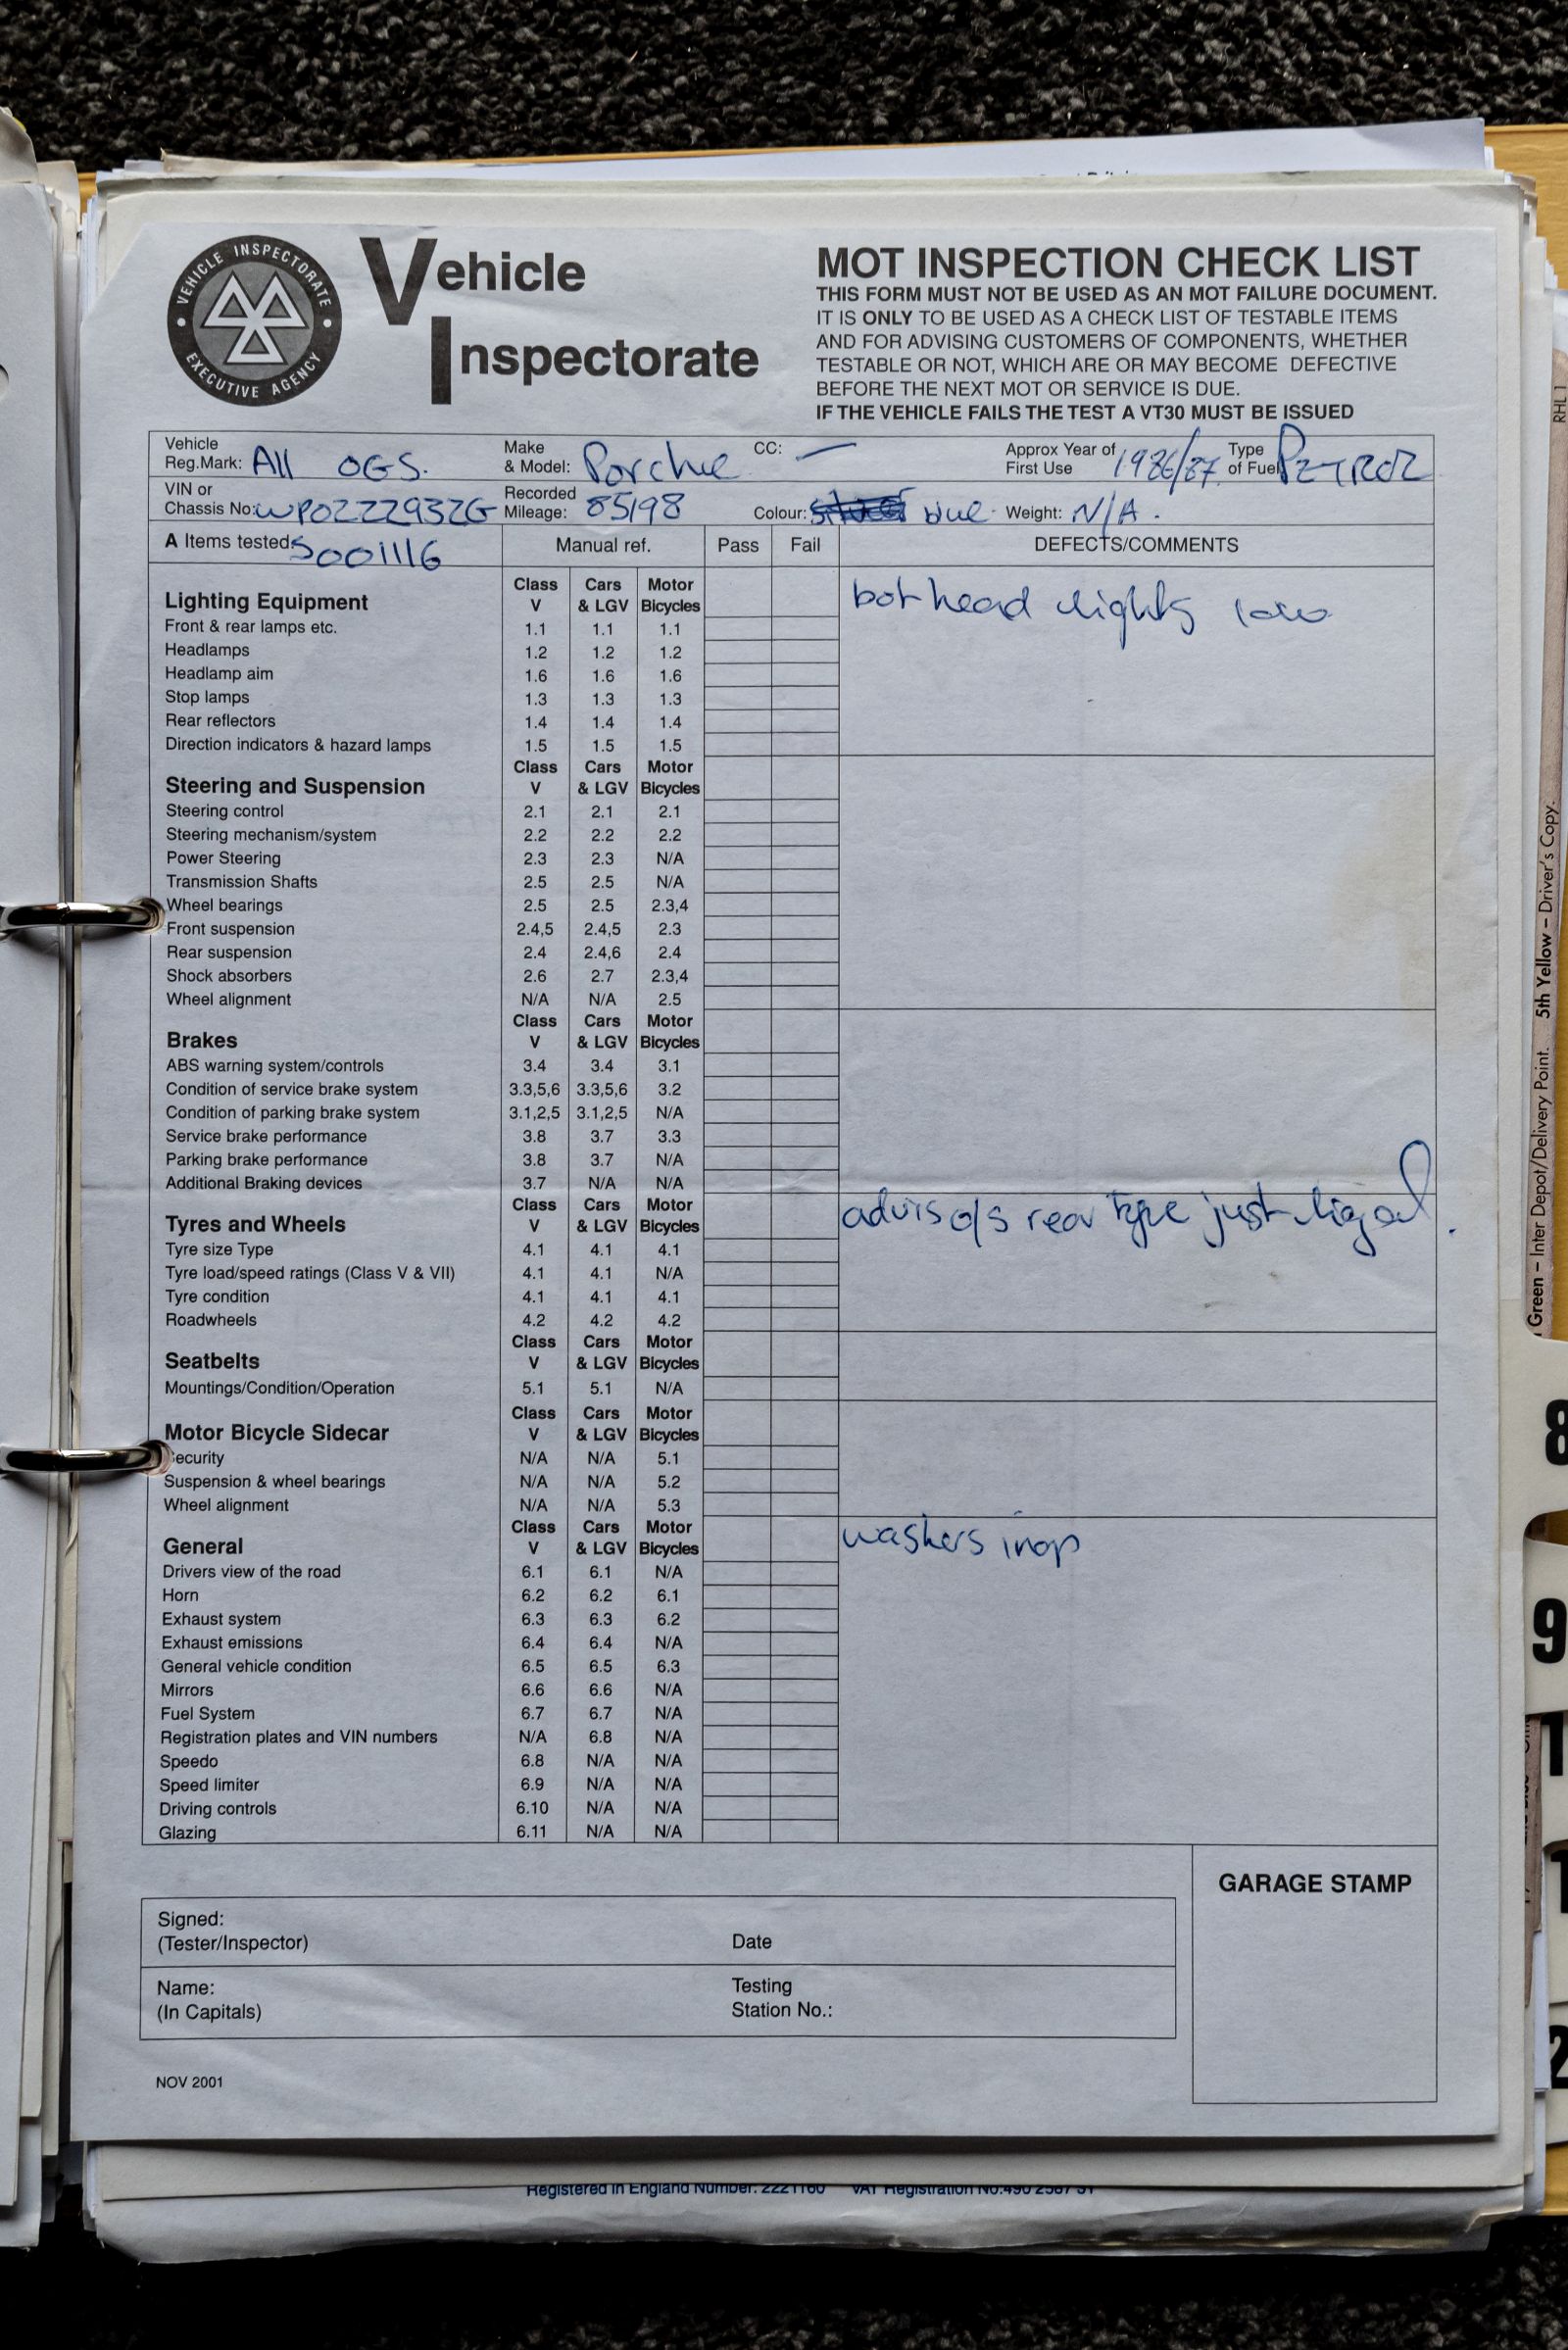 VEHICLE INSPECTORATE
EXECUTIVE AGENCY
Vehicle
Inspectorate
MOT INSPECTION CHECK LIST
THIS FORM MUST NOT BE USED AS AN MOT FAILURE DOCUMENT.
IT IS ONLY TO BE USED AS A CHECK LIST OF TESTABLE ITEMS
AND FOR ADVISING CUSTOMERS OF COMPONENTS, WHETHER
TESTABLE OR NOT, WHICH ARE OR MAY BECOME DEFECTIVE
BEFORE THE NEXT MOT OR SERVICE IS DUE.
IF THE VEHICLE FAILS THE TEST A VT30 MUST BE ISSUED
Vehicle Reg.Mark: A11 OGS. Make & Model: Porche CC: — Approx Year of First Use 1986/87 Type of Fuel PETROL
VIN or Chassis No: WPOZZZ93ZG Recorded Mileage: 85198 Colour: blue Weight: N/A.
A Items tested S001116 Manual ref. Pass Fail DEFECTS/COMMENTS
Lighting Equipment Class V Cars & LGV Motor Bicycles bot head lights low
Front & rear lamps etc. 1.1 1.1 1.1
Headlamps 1.2 1.2 1.2
Headlamp aim 1.6 1.6 1.6
Stop lamps 1.3 1.3 1.3
Rear reflectors 1.4 1.4 1.4
Direction indicators & hazard lamps 1.5 1.5 1.5
Steering and Suspension Class V Cars & LGV Motor Bicycles
Steering control 2.1 2.1 2.1
Steering mechanism/system 2.2 2.2 2.2
Power Steering 2.3 2.3 N/A
Transmission Shafts 2.5 2.5 N/A
Wheel bearings 2.5 2.5 2.3,4
Front suspension 2.4,5 2.4,5 2.3
Rear suspension 2.4 2.4,6 2.4
Shock absorbers 2.6 2.7 2.3,4
Wheel alignment N/A N/A 2.5
Brakes Class V Cars & LGV Motor Bicycles
ABS warning system/controls 3.4 3.4 3.1
Condition of service brake system 3.3,5,6 3.3,5,6 3.2
Condition of parking brake system 3.1,2,5 3.1,2,5 N/A
Service brake performance 3.8 3.7 3.3
Parking brake performance 3.8 3.7 N/A
Additional Braking devices 3.7 N/A N/A
Tyres and Wheels Class V Cars & LGV Motor Bicycles advis o/s rear type just ligal.
Tyre size Type 4.1 4.1 4.1
Tyre load/speed ratings (Class V & VII) 4.1 4.1 N/A
Tyre condition 4.1 4.1 4.1
Roadwheels 4.2 4.2 4.2
Seatbelts Class V Cars & LGV Motor Bicycles
Mountings/Condition/Operation 5.1 5.1 N/A
Motor Bicycle Sidecar Class V Cars & LGV Motor Bicycles
ecurity N/A N/A 5.1
Suspension & wheel bearings N/A N/A 5.2
Wheel alignment N/A N/A 5.3
General Class V Cars & LGV Motor Bicycles washers inop
Drivers view of the road 6.1 6.1 N/A
Horn 6.2 6.2 6.1
Exhaust system 6.3 6.3 6.2
Exhaust emissions 6.4 6.4 N/A
General vehicle condition 6.5 6.5 6.3
Mirrors 6.6 6.6 N/A
Fuel System 6.7 6.7 N/A
Registration plates and VIN numbers N/A 6.8 N/A
Speedo 6.8 N/A N/A
Speed limiter 6.9 N/A N/A
Driving controls 6.10 N/A N/A
Glazing 6.11 N/A N/A
GARAGE STAMP
Signed:
(Tester/Inspector) Date
Name: Testing
(In Capitals) Station No.:
NOV 2001
Registered in England Number: 2221160 VAT Registration No:490 2587 51
RHL 1
Green – Inter Depot/Delivery Point. 5th Yellow – Driver's Copy.
8
9
1
1
2